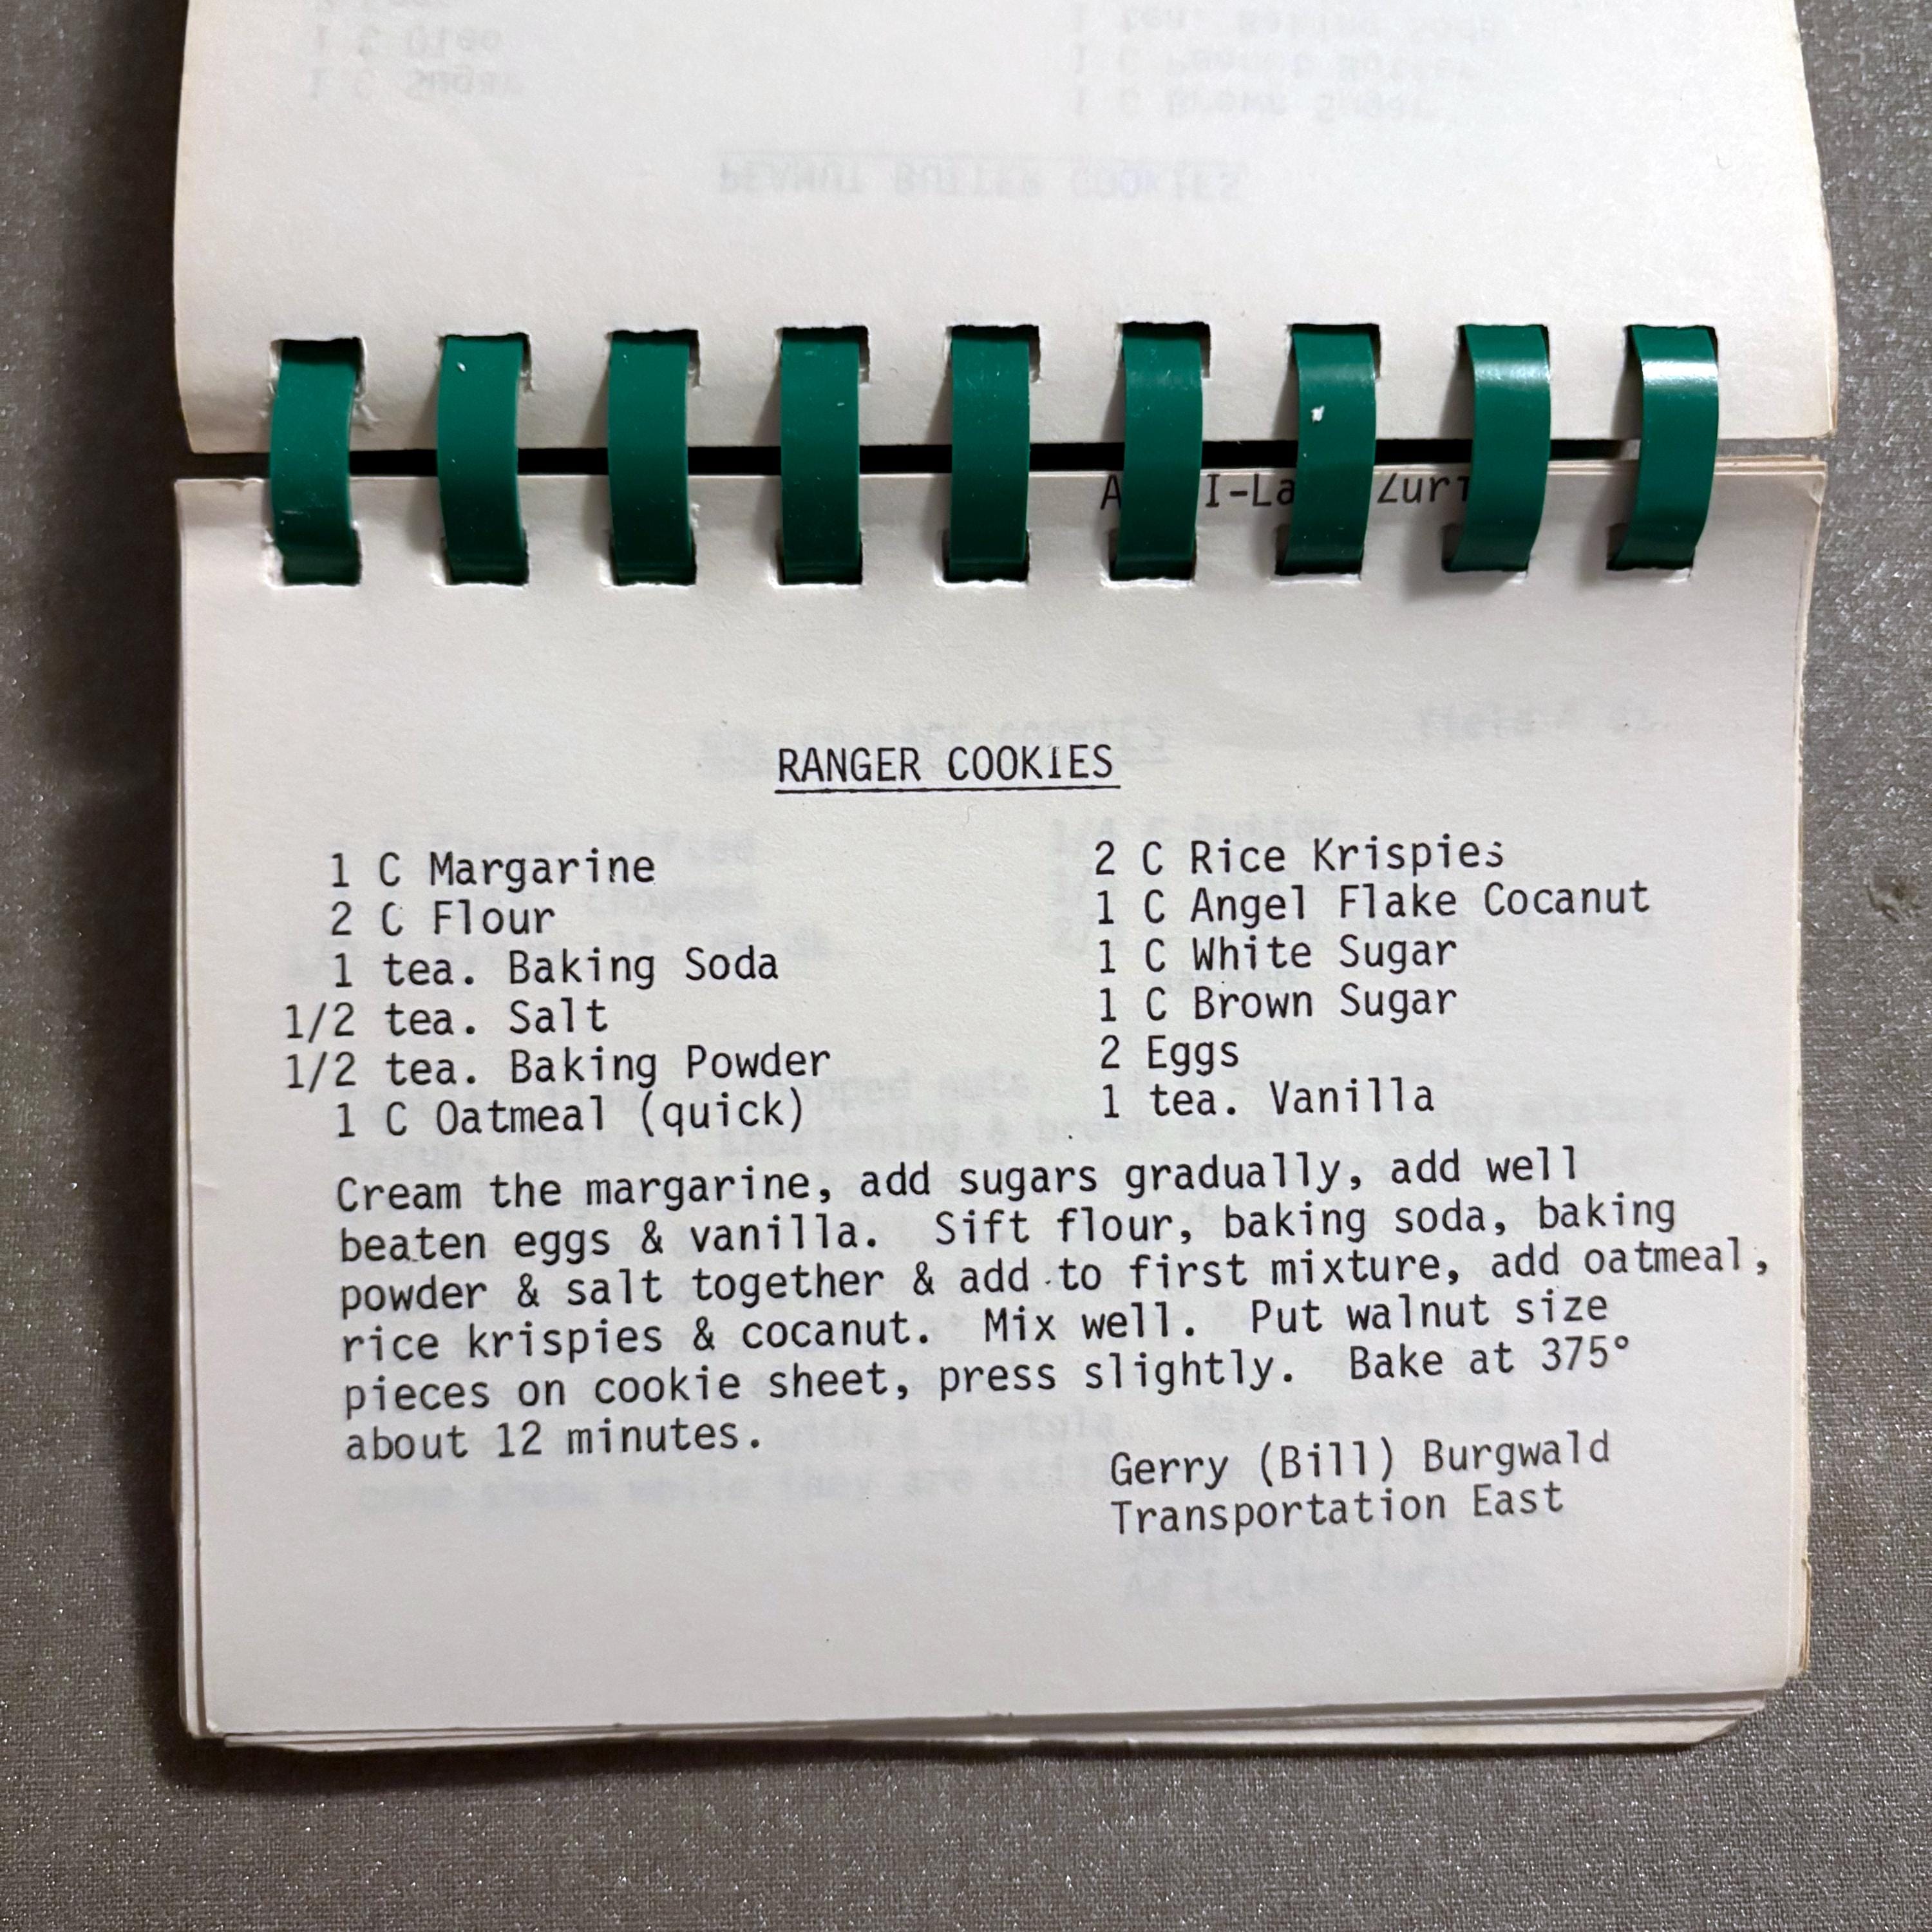 PEANUT BUTTER COOKIES
I-La
RANGER COOKIES
1 C Margarine
2 C Flour
1 tea. Baking Soda
1/2 tea. Salt
1/2 tea. Baking Powder
1 C Oatmeal (quick)
2 C Rice Krispies
1 C Angel Flake Cocanut
1 C White Sugar
1 C Brown Sugar
2 Eggs
1 tea. Vanilla
Cream the margarine, add sugars gradually, add well
beaten eggs & vanilla. Sift flour, baking soda, baking
powder & salt together & add to first mixture, add oatmeal,
rice krispies & cocanut. Mix well. Put walnut size
pieces on cookie sheet, press slightly. Bake at 375°
about 12 minutes.
Gerry (Bill) Burgwald
Transportation East